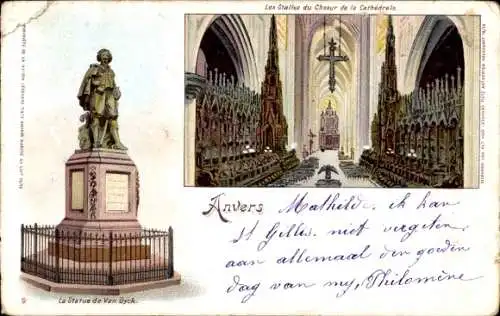 Les Stalles du Choeur de la Cathédrale
Anvers
Mathilde. ik kan
St Gillis. niet vergeten
aan allemaal den goeden
dag van my. Philomène
9
La Statue de Van Dyck.